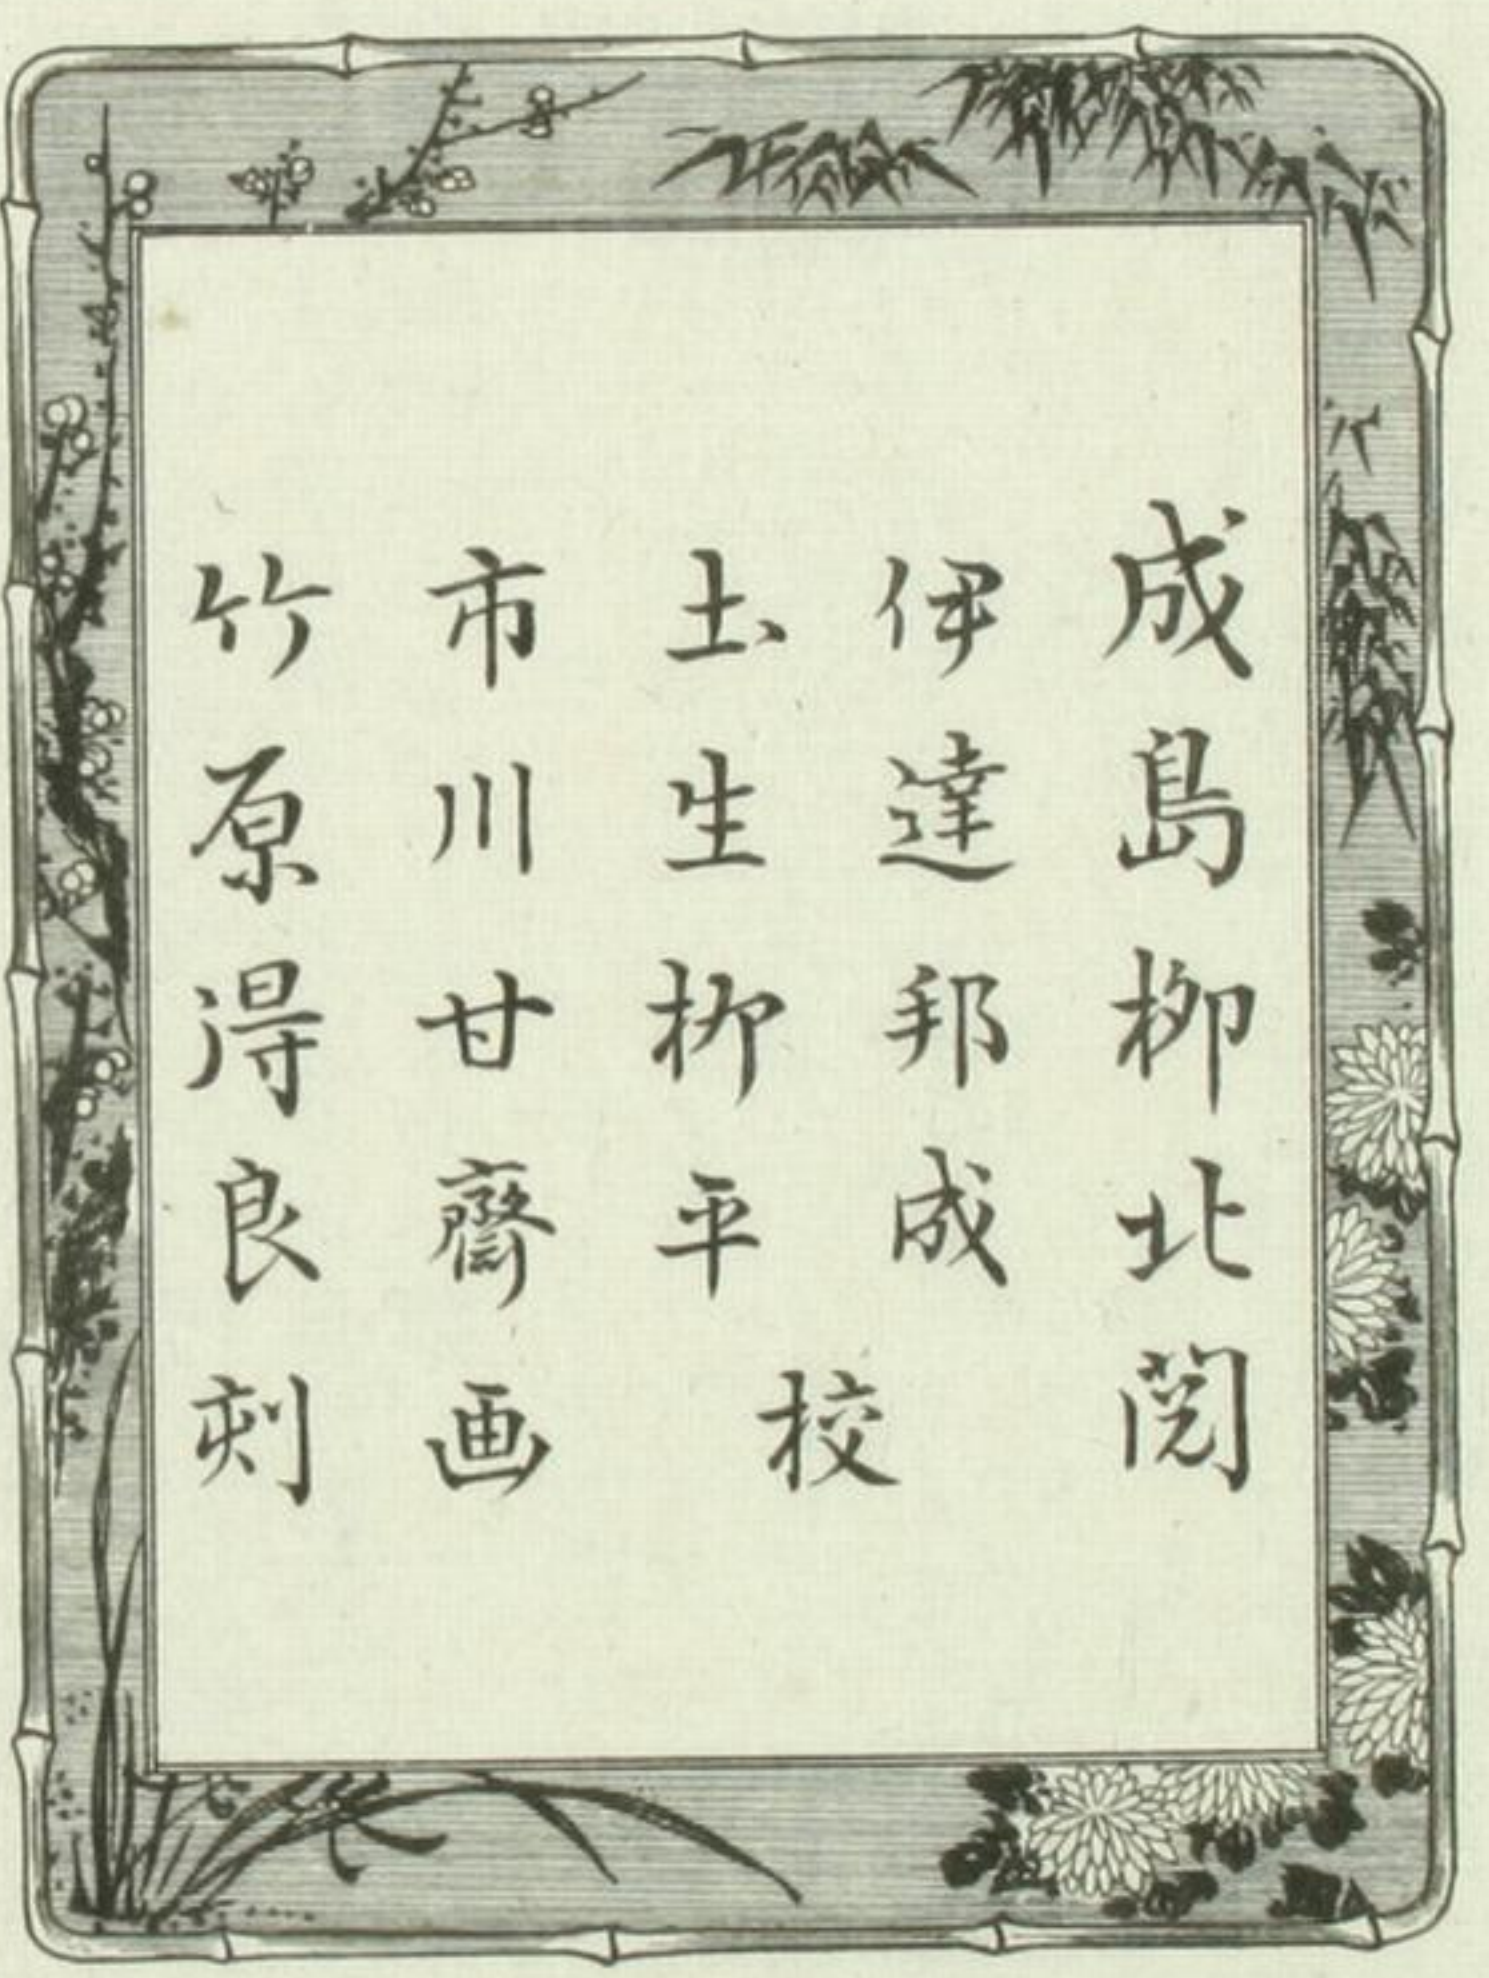 成島柳北閲
伊達邦成
圡生柳平
校
市川甘齋画
竹原淂良刻